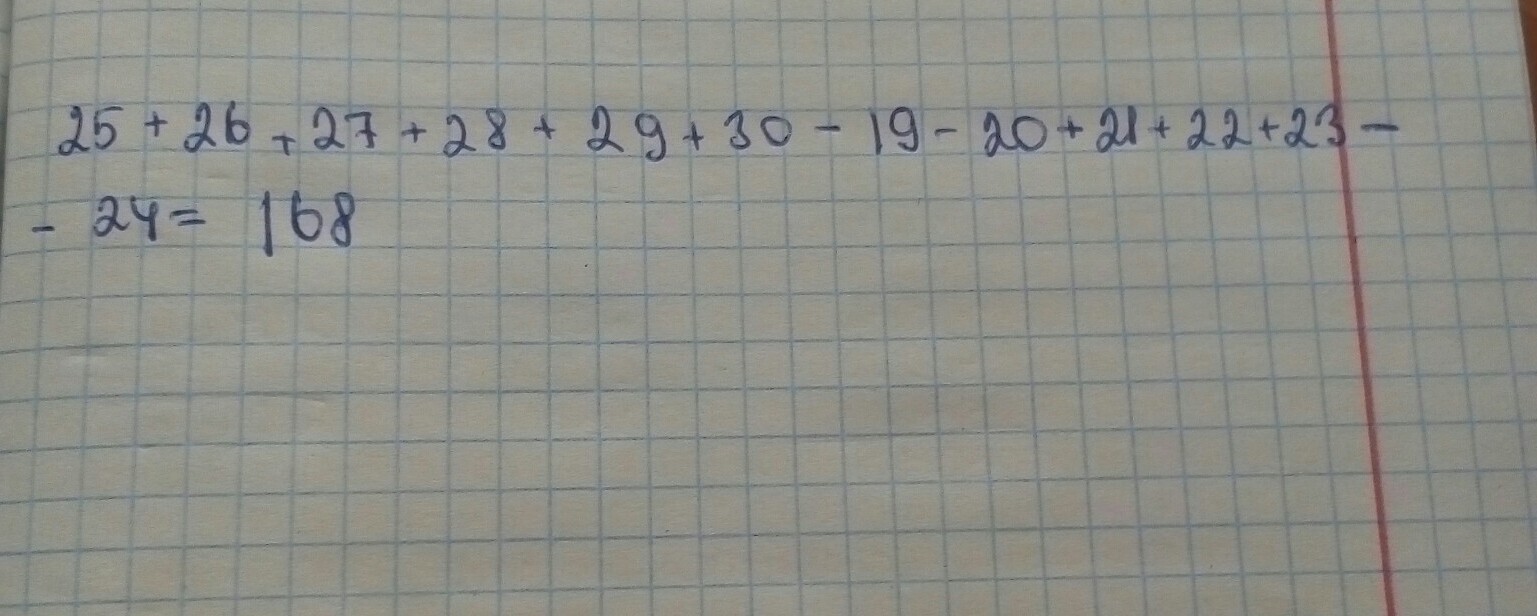 25 + 26 + 27 + 28 + 29 + 30 - 19 - 20 + 21 + 22 + 23 -
- 24 = 168